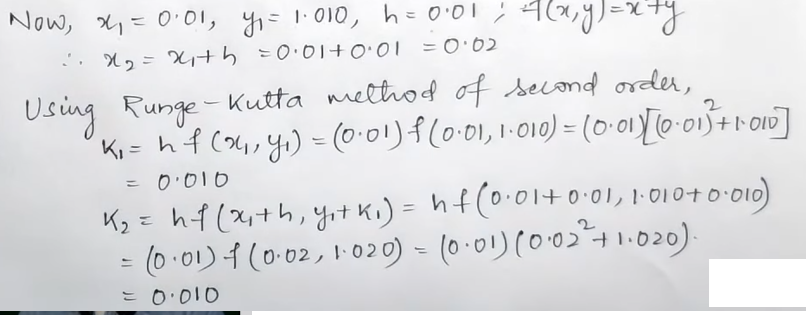 Now, x₁ = 0.01, y₁ = 1.010, h = 0.01 ; f(x,y)=x²+y
∴ x₂ = x₁+h = 0.01+0.01 = 0.02
Using Runge-Kutta method of second order,
K₁ = h f(x₁, y₁) = (0.01) f(0.01, 1.010) = (0.01)[(0.01)²+1.010]
= 0.010
K₂ = hf(x₁+h, y₁+K₁) = hf(0.01+0.01, 1.010+0.010)
= (0.01) f(0.02, 1.020) = (0.01)(0.02²+1.020).
= 0.010